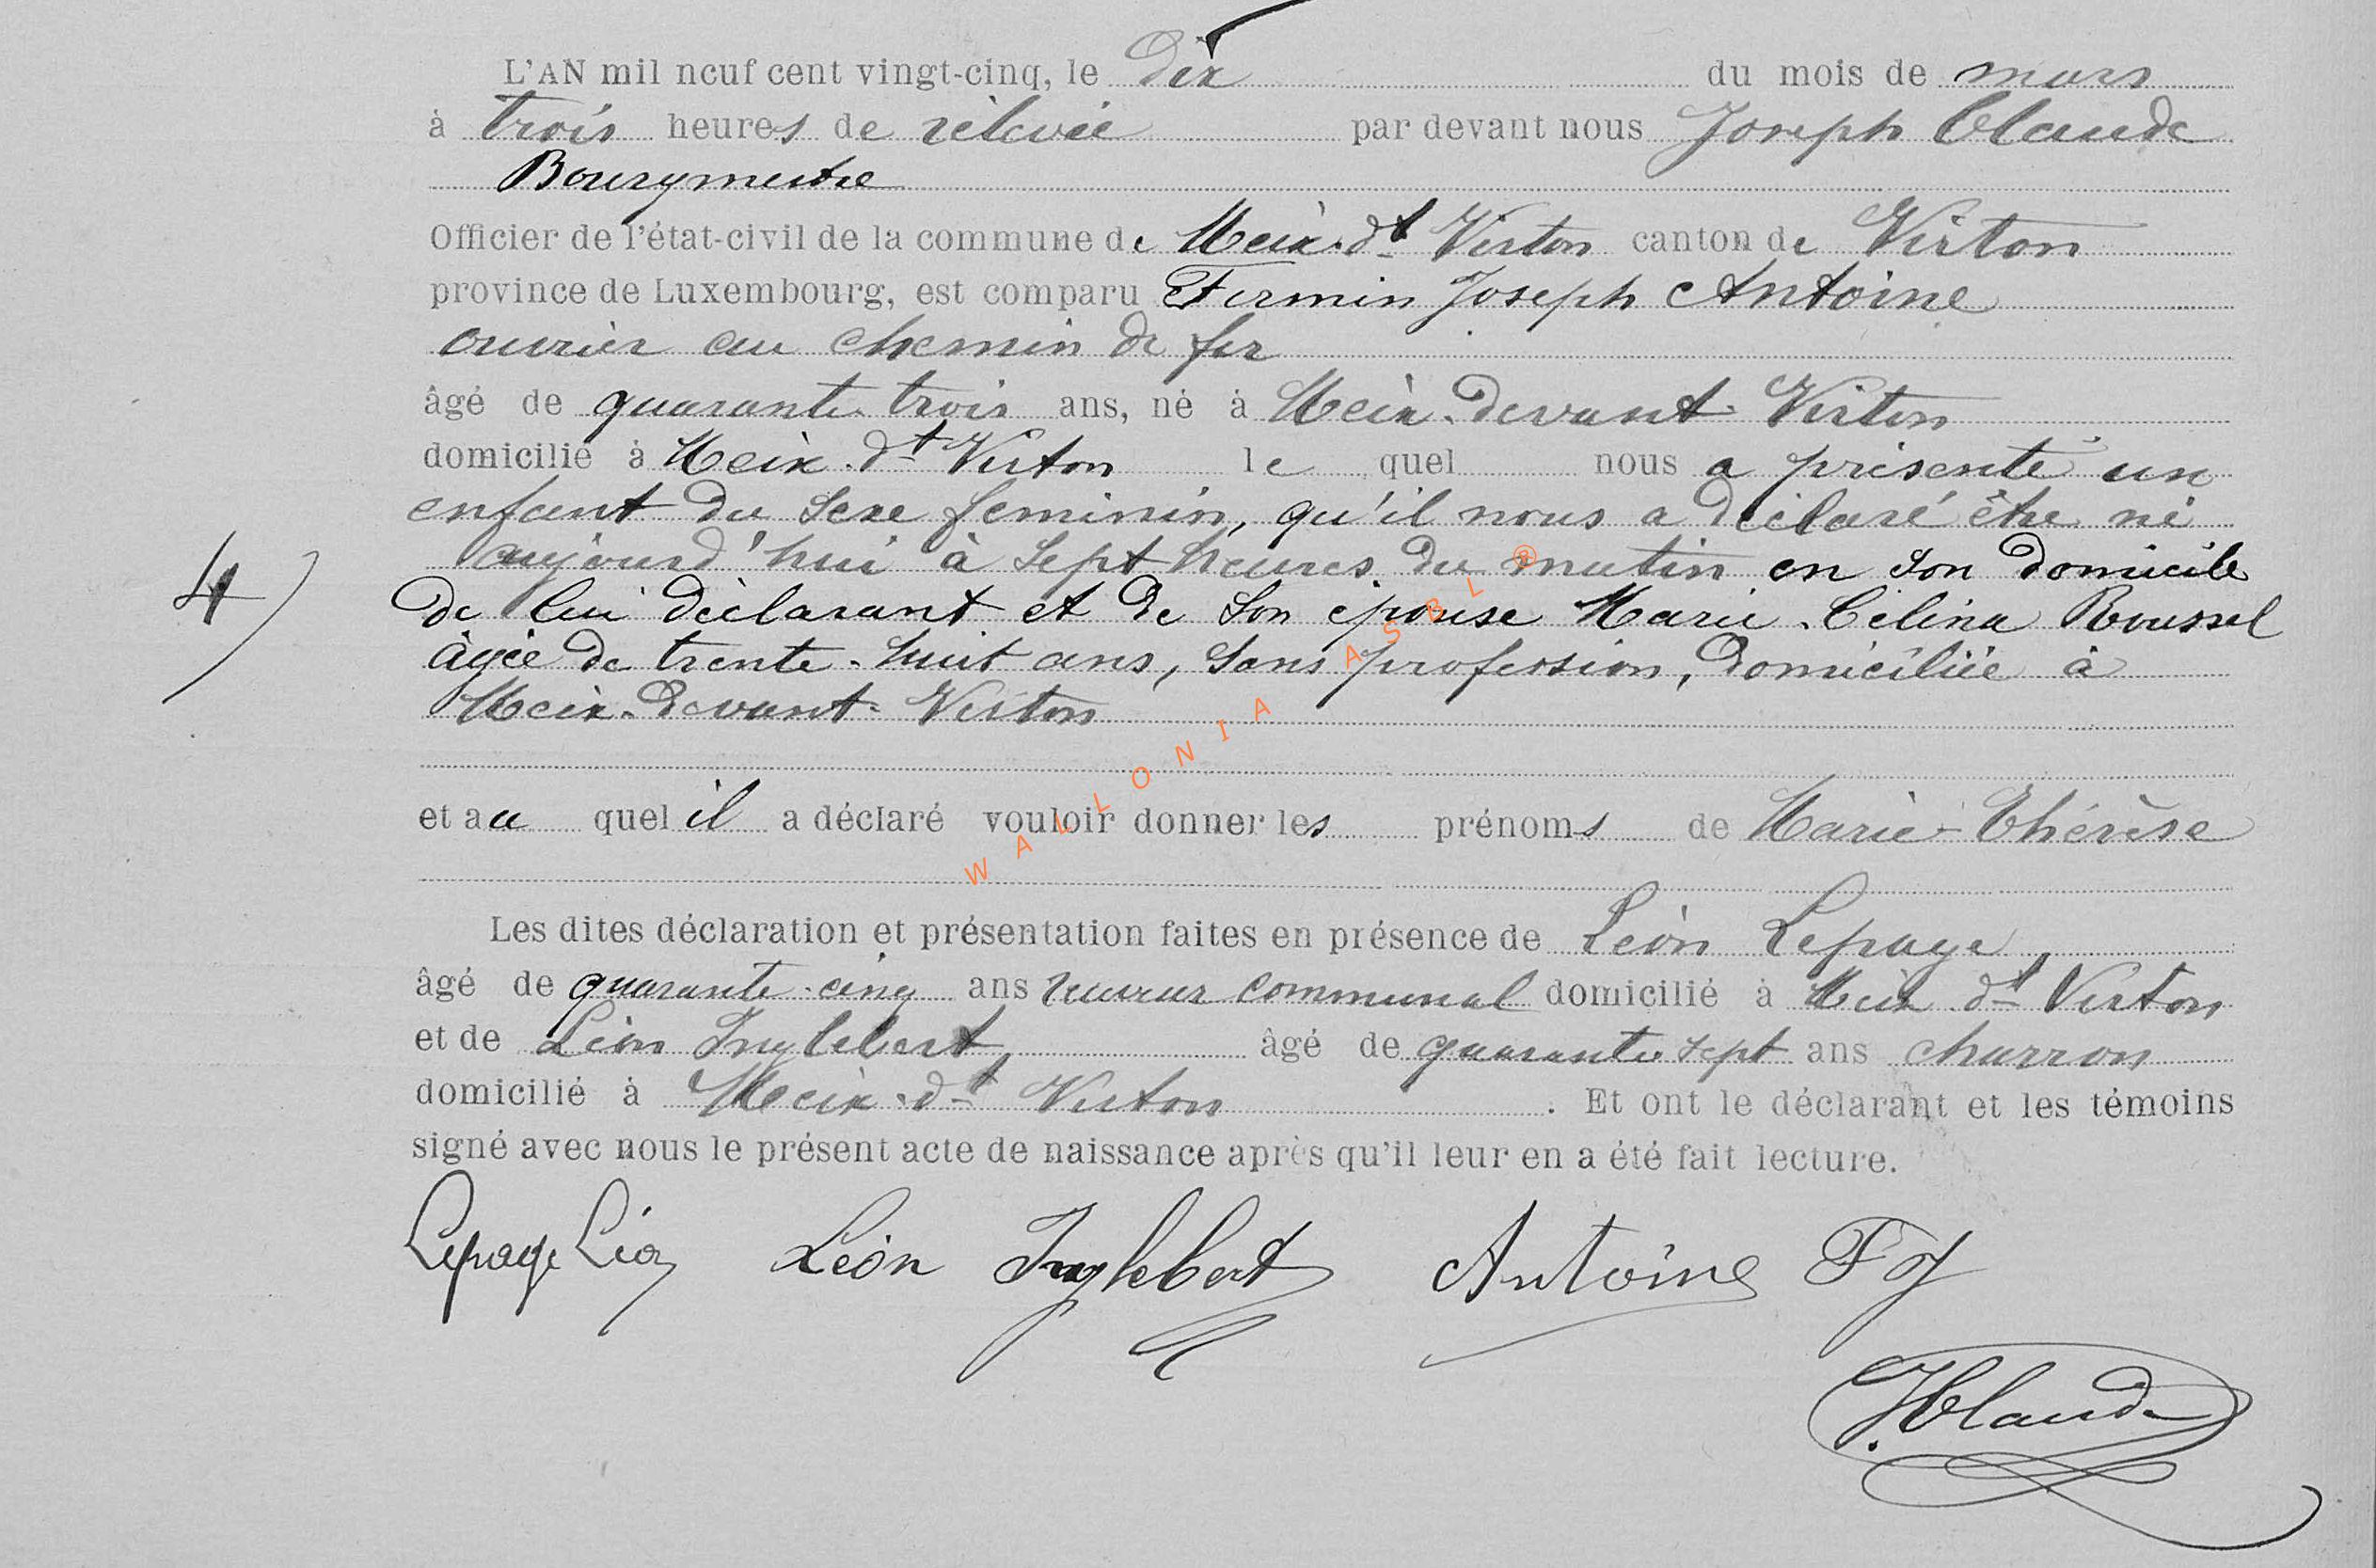 L'AN mil neuf cent vingt-cinq, le Dix du mois de mars
à trois heures de rélevée par devant nous Joseph Claude
Bourgmestre
Officier de l'état-civil de la commune de Meix-dt Virton canton de Virton
province de Luxembourg, est comparu Firmin Joseph Antoine
ouvrier au chemin de fer
âgé de quarante-trois ans, né à Meix-devant-Virton
domicilié à Meix-dt Virton le quel nous a présenté un
enfant du sexe feminin, qu'il nous a déclaré être né
aujourd'hui à sept heures du matin en son domicile
4) de lui déclarant et de son épouse Marie-Célina Roussel
âgée de trente-huit ans, sans profession, domiciliée à
Meix-devant-Virton
et au quel il a déclaré vouloir donner les prénoms de Marie-Thérèse
Les dites déclaration et présentation faites en présence de Léon Lepage,
âgé de quarante-cinq ans receveur communal domicilié à Meix dt Virton
et de Léon Inglebert, âgé de quarante-sept ans charron
domicilié à Meix-dt Virton. Et ont le déclarant et les témoins
signé avec nous le présent acte de naissance après qu'il leur en a été fait lecture.
Lepage Léon Léon Inglebert Antoine F J
J Claude
WALLONIA ASBL ®